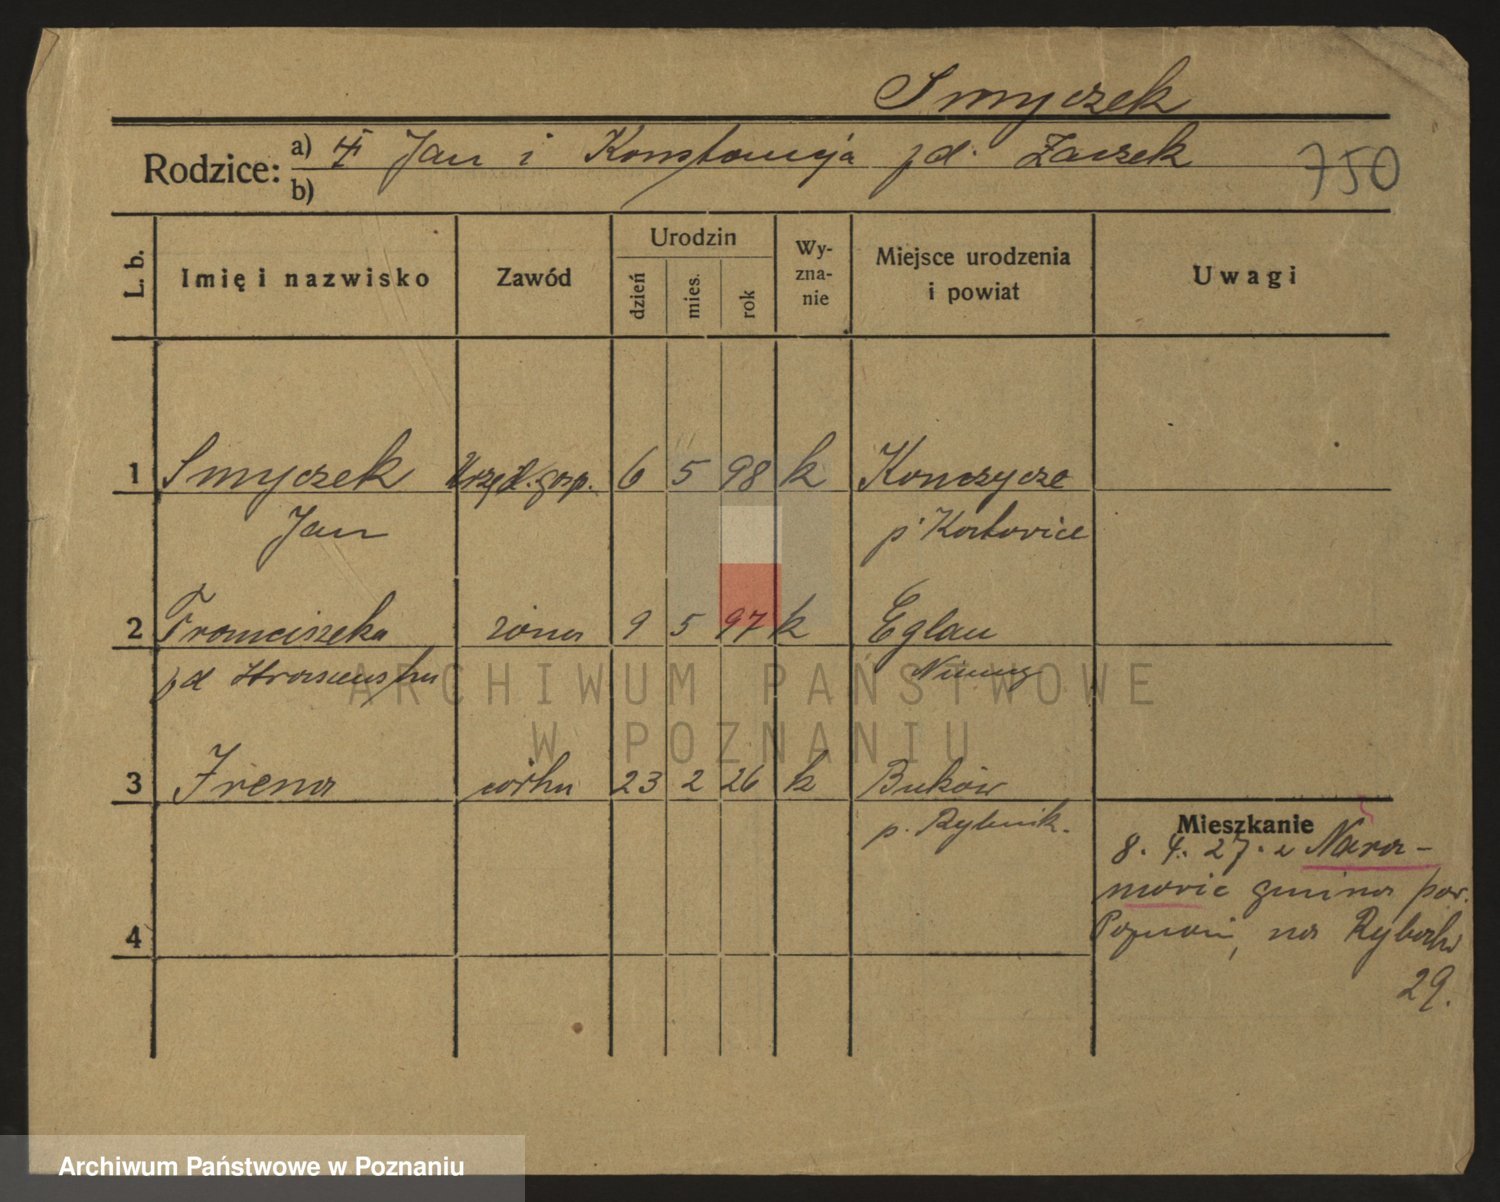 Smyczek
Rodzice: a) Jan i Konstancja zd. Zaczek
b)
750
L. b. Imię i nazwisko Zawód Urodzin dzień mies. rok Wy-zna-nie Miejsce urodzenia i powiat Uwagi
1 Smyczek Urzęd. gosp. 6 5 98 k Konczyce
Jan p. Katovice
2 Franciszka żona 9 5 97 k Eglau
zd Niemcy
3 Irena córka 23 2 26 k Buków
p. Rybnik.
Mieszkanie
8. 4. 27. z Nara-
movic gmina pow.
4 Poznań, na Rybaki
29.
ARCHIWUM PAŃSTWOWE
W POZNANIU
Archiwum Państwowe w Poznaniu